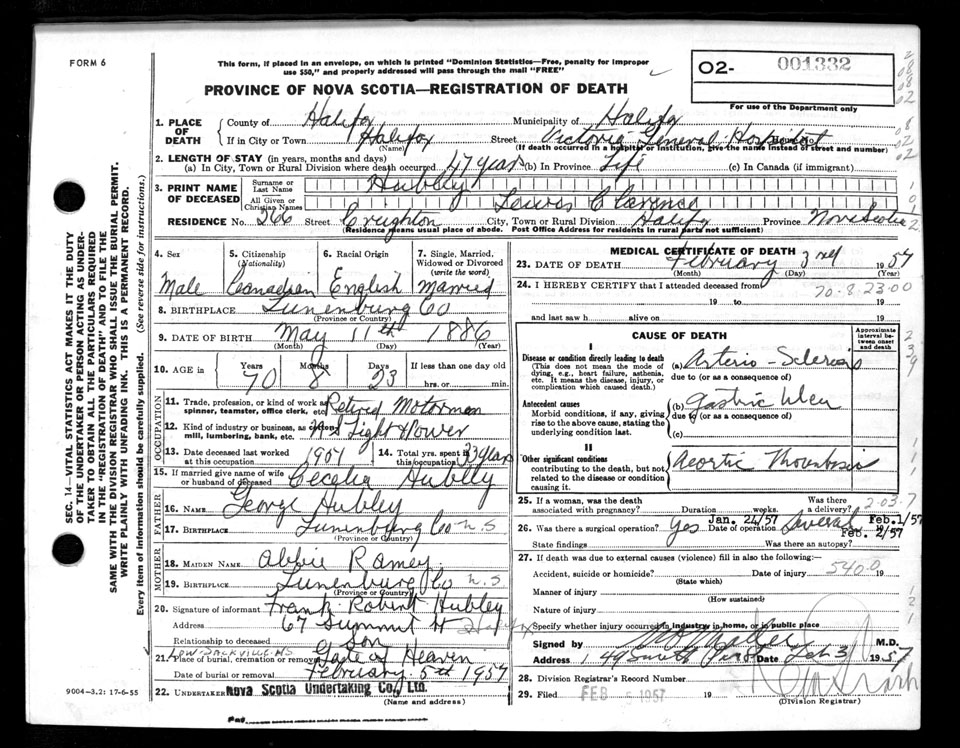 FORM 6
This form, if placed in an envelope, on which is printed "Dominion Statistics—Free, penalty for improper
use $50," and properly addressed will pass through the mail "FREE"
PROVINCE OF NOVA SCOTIA—REGISTRATION OF DEATH
O2- 001332
For use of the Department only
1. PLACE OF DEATH
County of Halifax Municipality of Halifax
If in City or Town Halifax Street Victoria General Hospital
(Name) (If death occurred in a hospital or institution, give the name instead of street and number)
2. LENGTH OF STAY (in years, months and days)
(a) In City, Town or Rural Division where death occurred 47 years (b) In Province Life (c) In Canada (if immigrant)
3. PRINT NAME OF DECEASED
Surname or Last Name Hubley
All Given or Christian Names Lewis Clarence
RESIDENCE No. 266 Street Creighton City, Town or Rural Division Halifax Province Nova Scotia
(Residence means usual place of abode. Post Office Address for residents in rural parts not sufficient)
4. Sex 5. Citizenship (Nationality) 6. Racial Origin 7. Single, Married, Widowed or Divorced (write the word)
Male Canadian English Married
8. BIRTHPLACE Lunenburg Co
(Province or Country)
9. DATE OF BIRTH May 11th 1886
(Month) (Day) (Year)
10. AGE in Years Months Days If less than one day old
70 8 23 hrs. or min.
OCCUPATION
11. Trade, profession, or kind of work as spinner, teamster, office clerk, etc. Retired Motorman
12. Kind of industry or business, as cotton mill, lumbering, bank, etc. Light Power
13. Date deceased last worked at this occupation 14. Total yrs. spent in this occupation 33 years
15. If married give name of wife or husband of deceased Cecelia Hubley
FATHER
16. NAME George Hubley
17. BIRTHPLACE Lunenburg Co N.S
(Province or Country)
MOTHER
18. MAIDEN NAME Abbie Ramey
19. BIRTHPLACE Lunenburg Co N.S
20. Signature of informant Frank Robert Hubley
Address 67 Summit St Halifax
Relationship to deceased Son
LOW-SACKVILLE-NS
21. Place of burial, cremation or removal Gate of Heaven
Date of burial or removal February 5th 1957
22. UNDERTAKER Nova Scotia Undertaking Co., Ltd.
(Name and address)
9004-3.2: 17-6-55
MEDICAL CERTIFICATE OF DEATH
23. DATE OF DEATH February 3rd 1957
(Month) (Day) (Year)
24. I HEREBY CERTIFY that I attended deceased from
70-8-23-00
19 to 19
and last saw h alive on 19
CAUSE OF DEATH
Approximate interval between onset and death
I
Disease or condition directly leading to death
(This does not mean the mode of dying, e.g., heart failure, asthenia, etc. It means the disease, injury, or complication which caused death.)
(a) Arterio-Sclerosis
due to (or as a consequence of)
Antecedent causes
Morbid conditions, if any, giving rise to the above cause, stating the underlying condition last.
(b) Gastric Ulcer
due to (or as a consequence of)
(c)
II
Other significant conditions
contributing to the death, but not related to the disease or condition causing it.
Aeortic Thrombosis
25. If a woman, was the death associated with pregnancy? Duration weeks. Was there a delivery?
2-03-7
26. Was there a surgical operation? yes Date of operation Jan. 24/57 Several Feb. 1/57 Feb. 2/57
State findings Was there an autopsy?
27. If death was due to external causes (violence) fill in also the following:
540-0
Accident, suicide or homicide? Date of injury 19
(State which)
Manner of injury
(How sustained)
Nature of injury
Specify whether injury occurred in industry, in home, or in public place
Signed by M.D.
Address Date Feb 3 1957
28. Division Registrar's Record Number
29. Filed FEB 5 1957 19
(Division Registrar)
SEC. 14—VITAL STATISTICS ACT MAKES IT THE DUTY
OF THE UNDERTAKER OR PERSON ACTING AS UNDER-
TAKER TO OBTAIN ALL THE PARTICULARS REQUIRED
IN THE "REGISTRATION OF DEATH" AND TO FILE THE
SAME WITH THE DIVISION REGISTRAR WHO SHALL ISSUE THE BURIAL PERMIT.
WRITE PLAINLY WITH UNFADING INK. THIS IS A PERMANENT RECORD.
Every item of information should be carefully supplied. (See reverse side for instructions.)